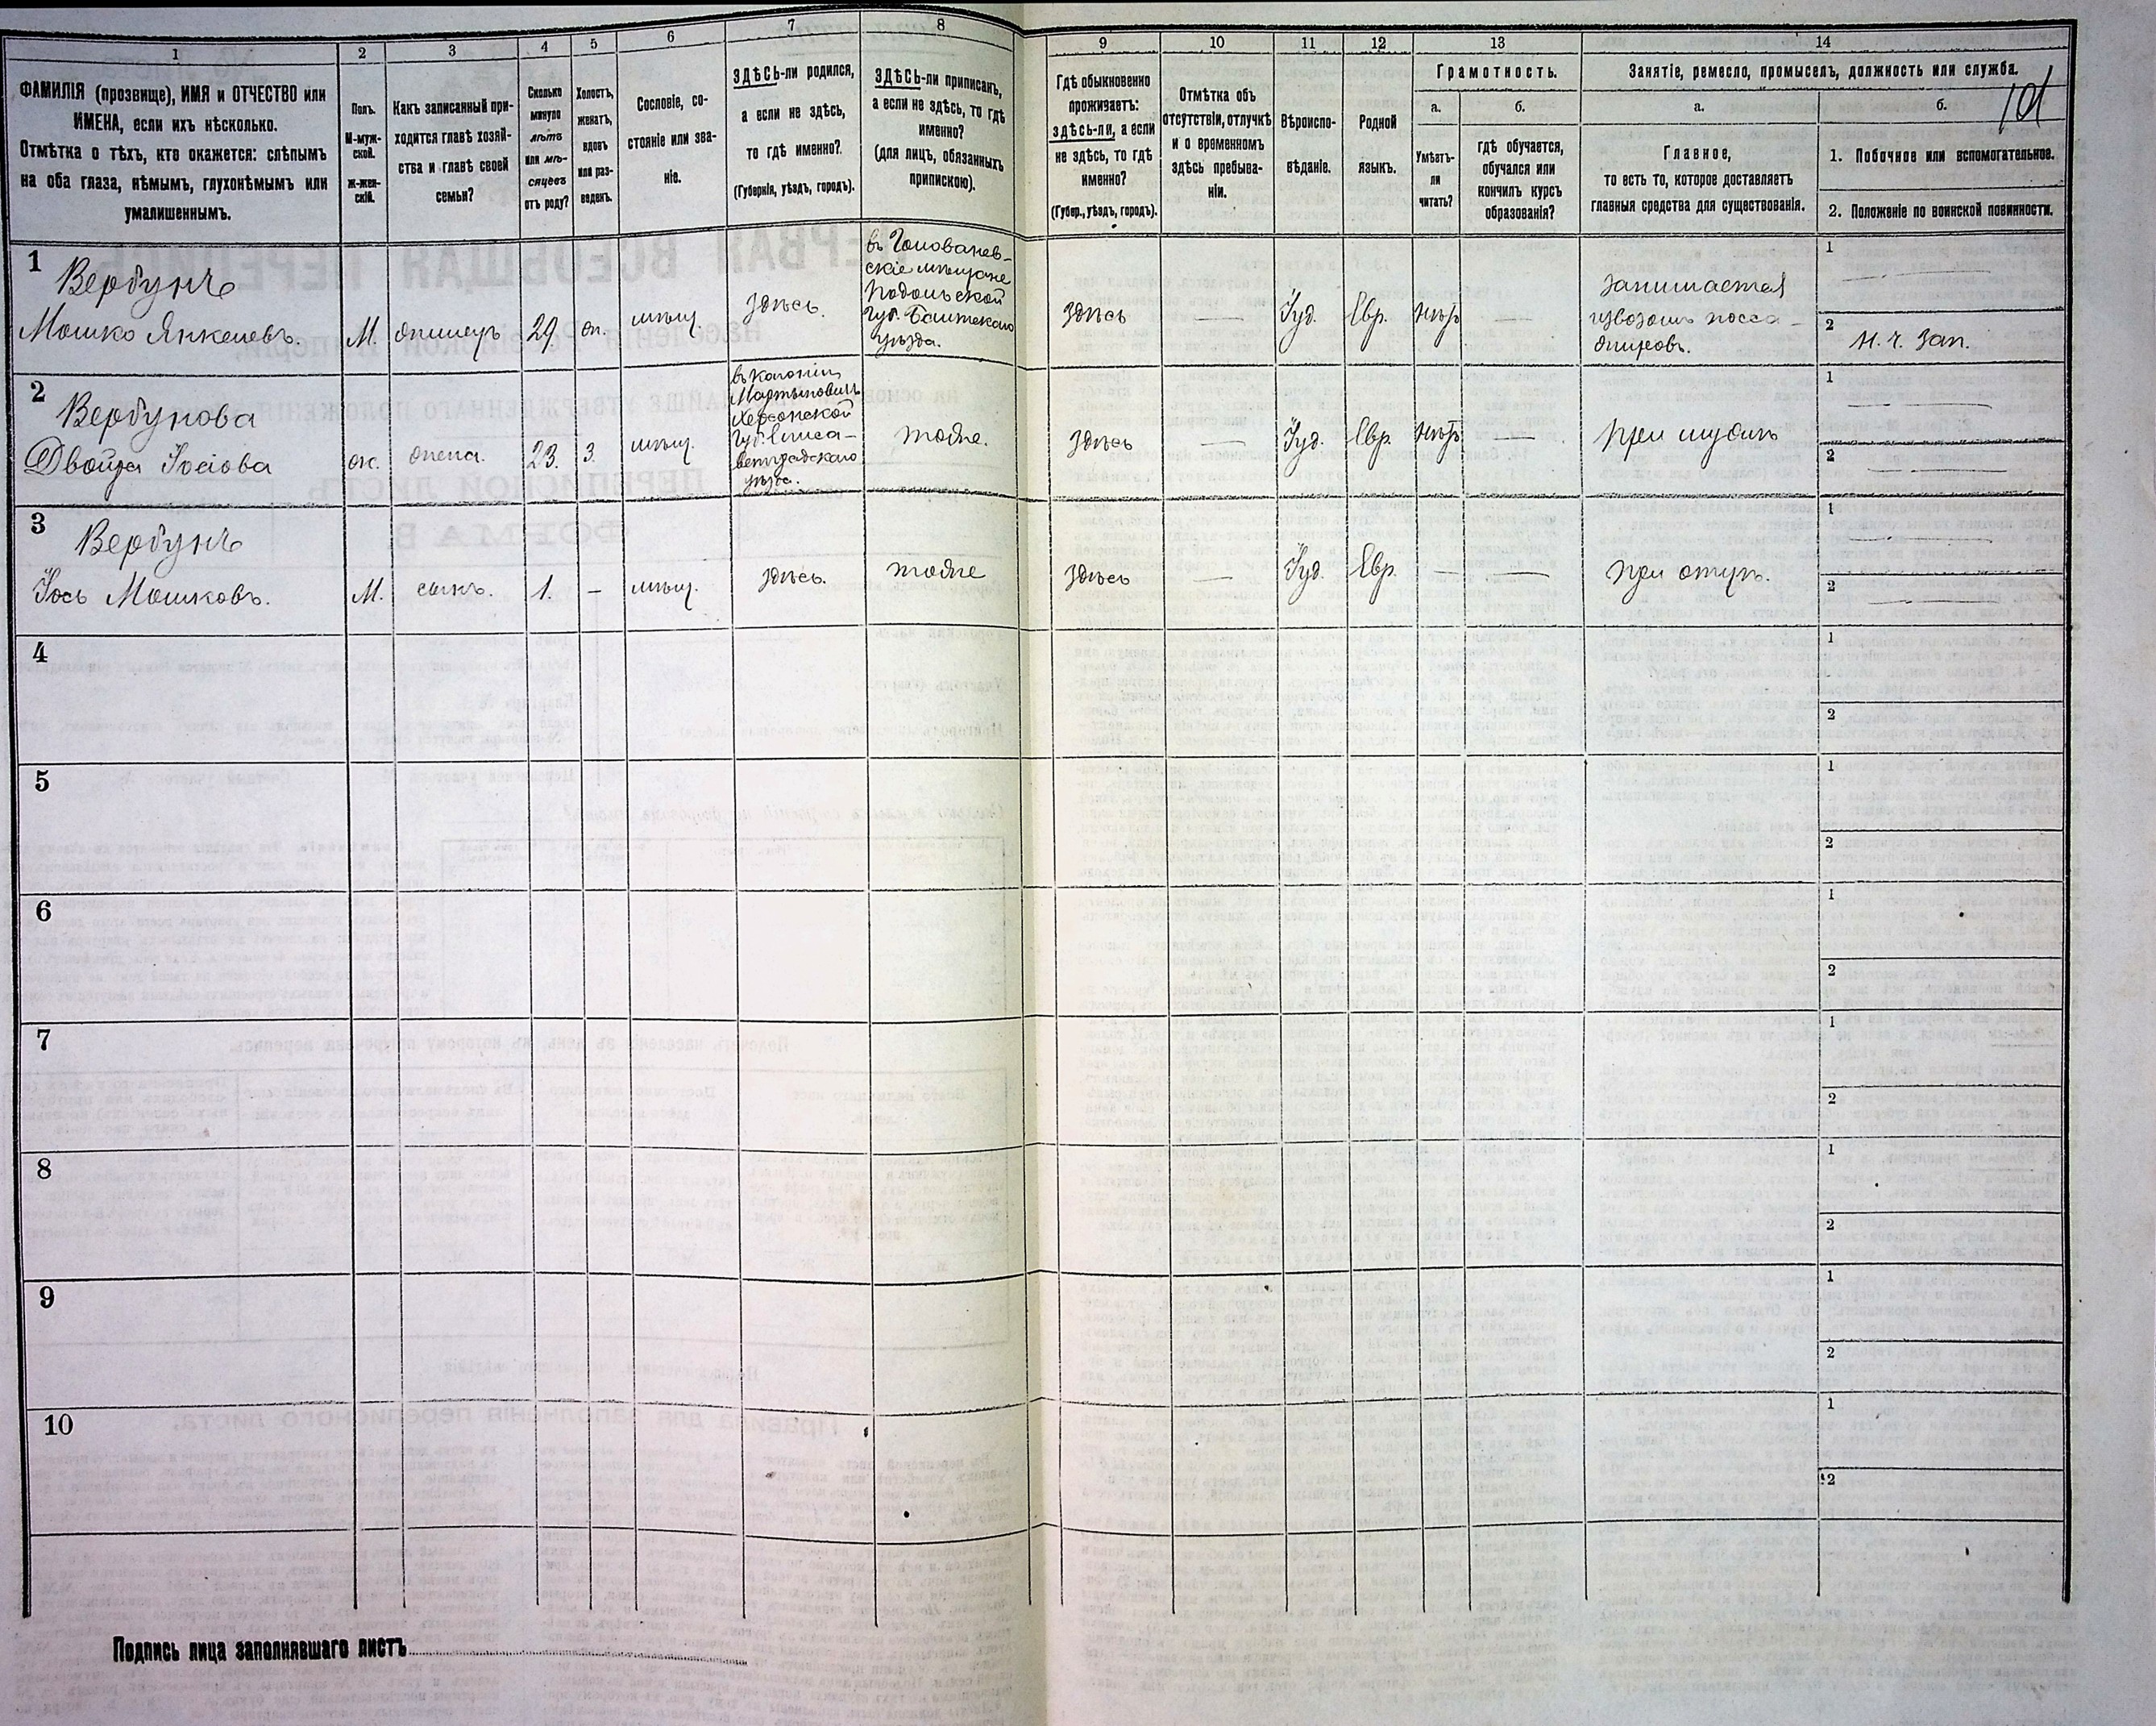 1
2
3
4
5
6
7
8
9
10
11
12
13
14
ФАМИЛІЯ (прозвище), ИМЯ и ОТЧЕСТВО или
ИМЕНА, если ихъ нѣсколько.
Отмѣтка о тѣхъ, кто окажется: слѣпымъ
на оба глаза, нѣмымъ, глухонѣмымъ или
умалишеннымъ.
Полъ.
М-муж-
ской.
Ж-жен-
скій.
Какъ записанный при-
ходится главѣ хозяй-
ства и главѣ своей
семьи?
Сколько
минуло
лѣтъ
или мѣ-
сяцевъ
отъ роду?
Холостъ,
женатъ,
вдовъ
или раз-
веденъ.
Сословіе, со-
стояніе или зва-
ніе.
ЗДѢСЬ-ли родился,
а если не здѣсь,
то гдѣ именно?
(Губернія, уѣздъ, городъ).
ЗДѢСЬ-ли приписанъ,
а если не здѣсь, то гдѣ
именно?
(для лицъ, обязанныхъ
припискою).
Гдѣ обыкновенно
проживаетъ:
здѣсь-ли, а если
не здѣсь, то гдѣ
именно?
(Губер., уѣздъ, городъ).
Отмѣтка объ
отсутствіи, отлучкѣ
и о временномъ
здѣсь пребыва-
ніи.
Вѣроиспо-
вѣданіе.
Родной
языкъ.
Грамотность.
а.
б.
Умѣетъ-
ли
читать?
гдѣ обучается,
обучался или
кончилъ курсъ
образованія?
Занятіе, ремесло, промыселъ, должность или служба.
а.
б.
101
Главное,
то есть то, которое доставляетъ
главныя средства для существованія.
1. Побочное или вспомогательное.
2. Положеніе по воинской повинности.
1
Вербунъ
Мошко Янкелевъ.
М.
жилецъ
29
ж.
мѣщ.
здѣсь.
въ Голованев-
скіе мѣщане
Подольской
Губ. Балтскаго
уѣзда.
здѣсь
—
Іуд.
Евр.
нѣтъ
—
занимается
извозомъ пасса-
жировъ.
1
—
2
н. ч. зап.
2
Вербунова
Двойра Іосіова
ж.
жена.
23.
З.
мѣщ.
въ колоніи
Херсонской
Губ. Елиса-
ветградскаго
уѣзда.
тоже.
здѣсь
—
Іуд.
Евр.
нѣтъ
—
при мужѣ
1
—
2
—
3
Вербунъ
Іось Мошковъ.
М.
сынъ.
1.
—
мѣщ.
здѣсь.
тоже
здѣсь
—
Іуд.
Евр.
—
—
при отцѣ.
1
—
2
—
4
1
2
5
1
2
6
1
2
7
1
2
8
1
2
9
1
2
10
1
2
Подпись лица заполнявшаго листъ